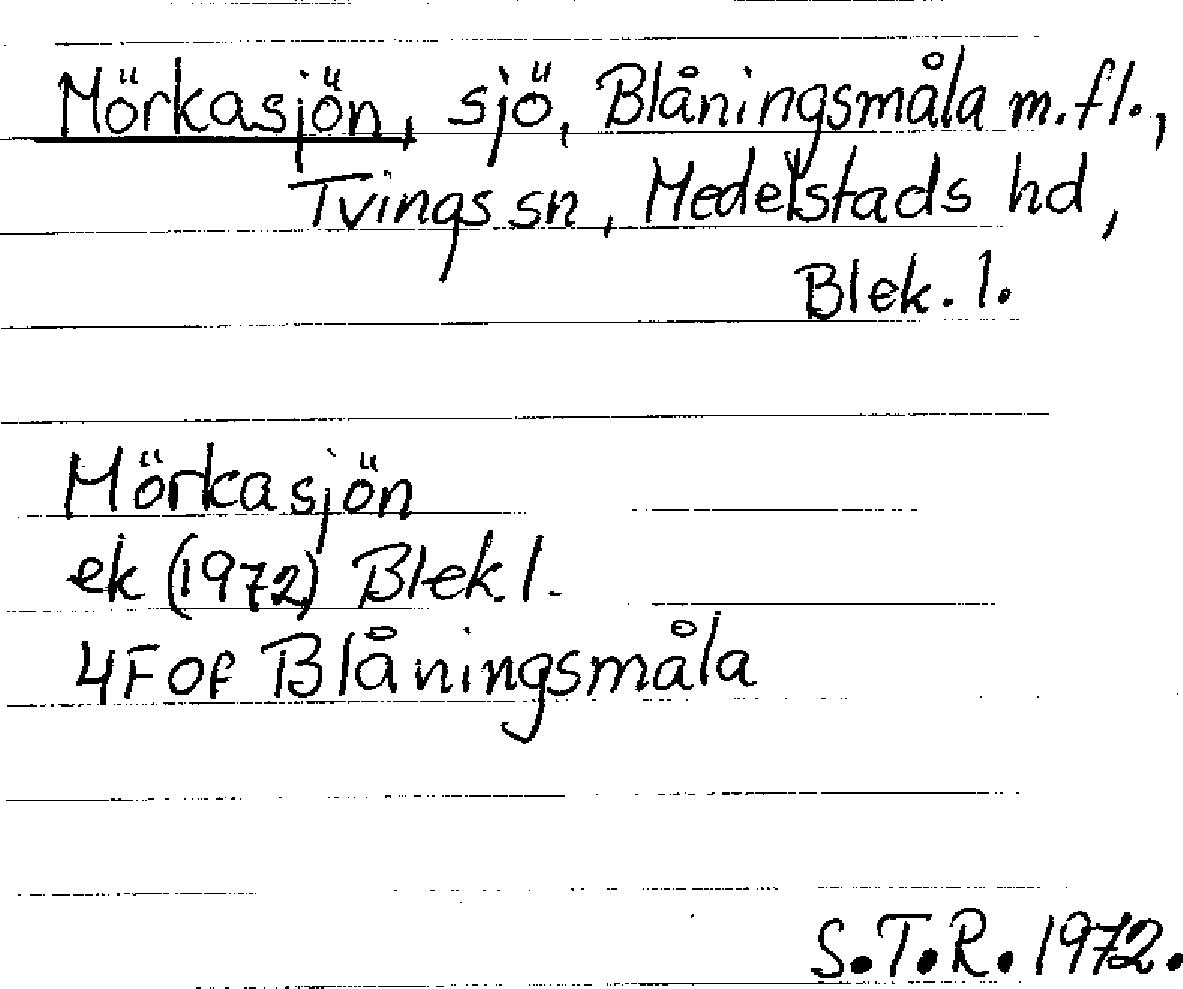 Mörkasjön, sjö, Blåningsmåla m.fl.,
Tvings sn, Medelstads hd,
Blek. l.
Mörkasjön
ek (1972) Blek.l.
4F0f Blåningsmåla
S.T.R. 1972.